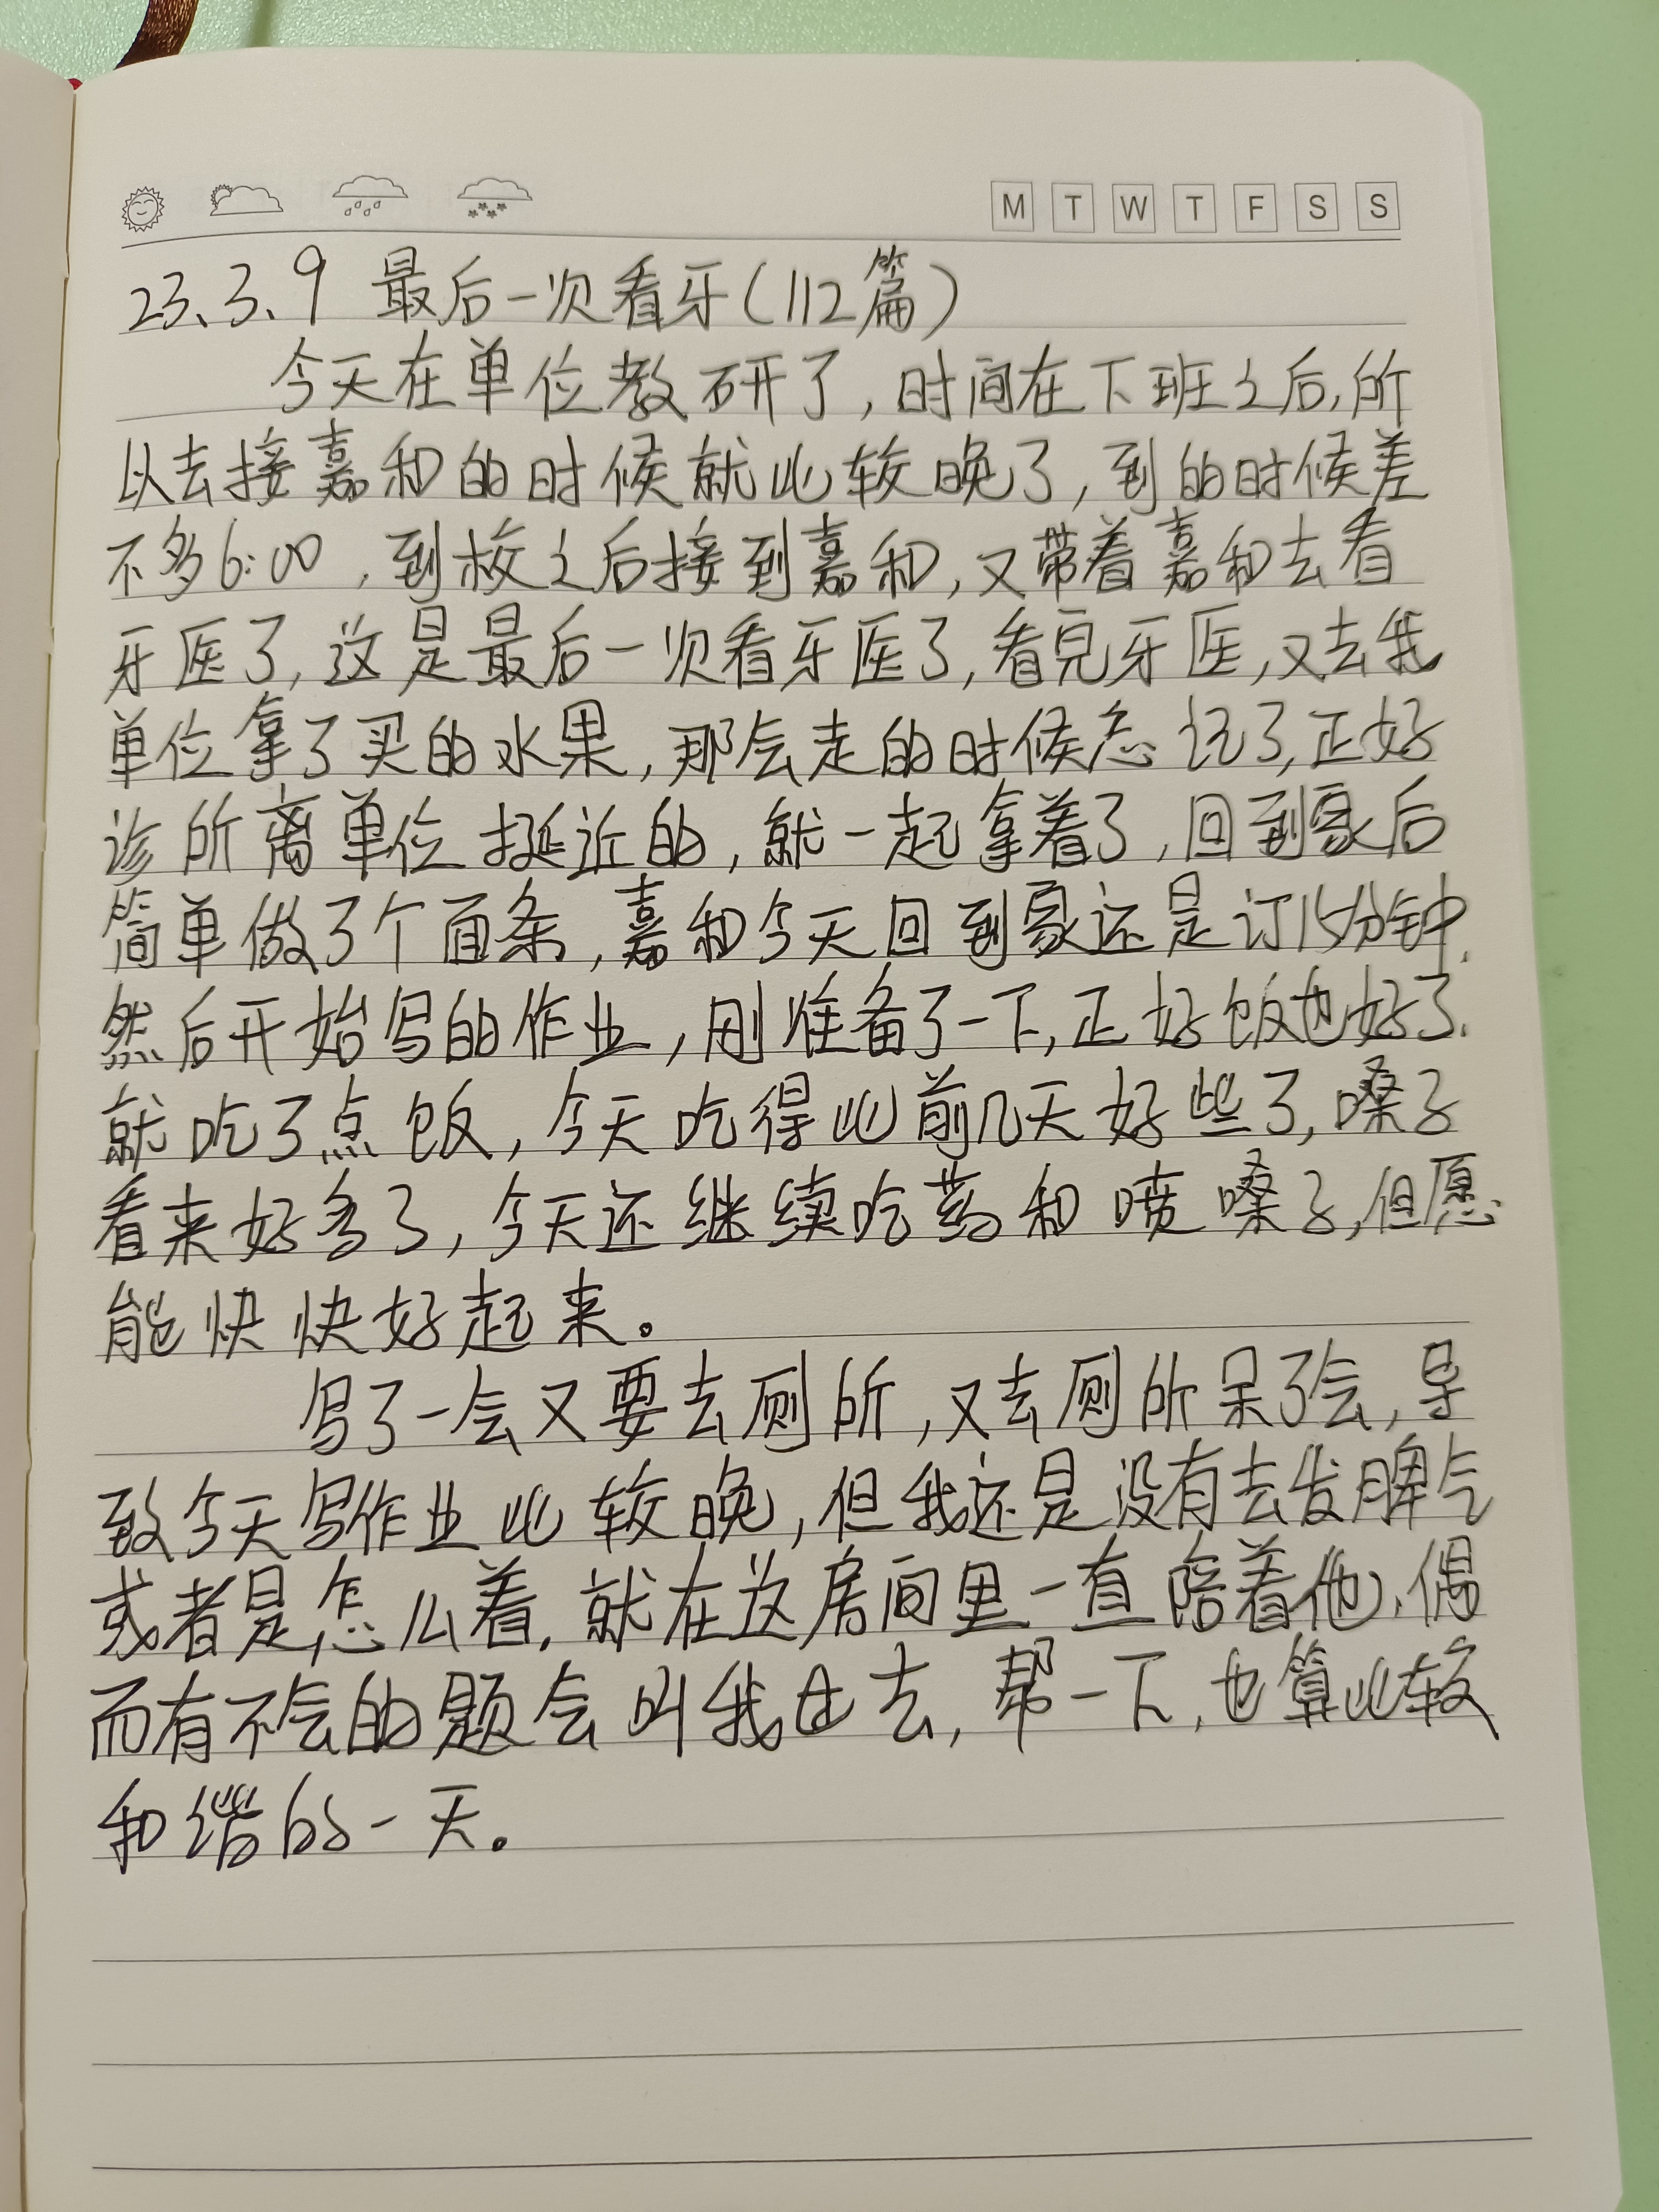 M T W T F S S
23、3、9 最后一次看牙(112篇)
今天在单位教研了,时间在下班之后,所
以去接嘉和的时候就比较晚了,到的时候差
不多6:00,到校之后接到嘉和,又带着嘉和去看
牙医了,这是最后一次看牙医了,看完牙医,又去我
单位拿了买的水果,那会走的时候忘记了,正好
诊所离单位挺近的,就一起拿着了,回到家后
简单做了个面条,嘉和今天回到家还是订15分钟,
然后开始写的作业,刚准备了一下,正好饭也好了,
就吃了点饭,今天吃得比前几天好些了,嗓子
看来好多了,今天还继续吃药和喷嗓子,但愿
能快快好起来。
写了一会又要去厕所,又去厕所呆了会,导
致今天写作业比较晚,但我还是没有去发脾气
或者是怎么着,就在这房间里一直陪着他,偶
而有不会的题会叫我过去,帮一下,也算比较
和谐的一天。